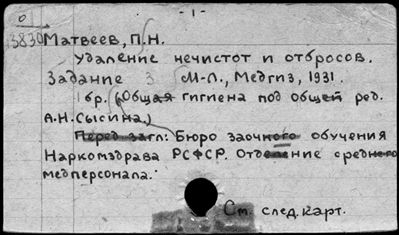 - 1 -
0
3830
Матвеев, П.Н.
Удаление нечистот и отбросов.
Задание 3 М-Л., Медгиз, 1931.
1 бр. (Общая гигиена под общей ред.
А.Н. Сысина.)
Перед загл: Бюро заочного обучения
Наркомздрава РСФСР. Отделение среднего
медперсонала.
См. след. карт.